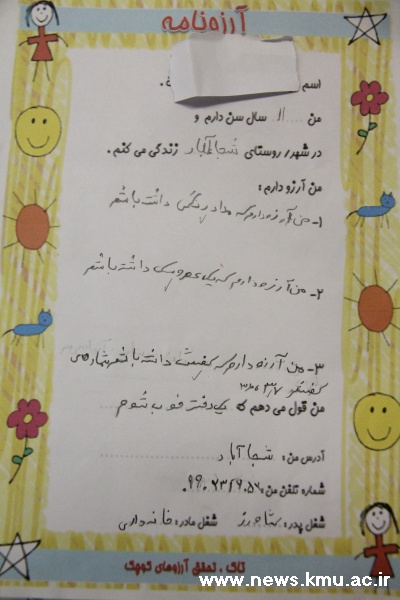 آرزونامه
اسم
من ...۱۱ سال سن دارم و
در شهر/ روستای شجاع آباد زندگی می کنم.
من آرزو دارم:
۱- من آرزو دارم که مداد رنگی داشته باشم
۲- من آرزو دارم که یک عروسک داشته باشم
۳- من آرزو دارم که کفش داشته باشم شماره ی
کفشم ۳۷
من قول می دهم که یک دختر خوب شوم
آدرس من: شجاع آباد
شماره تلفن من:
شغل پدر: کشاورز شغل مادر: خانه داری
تاک، تحقق آرزوهای کوچک
www.news.kmu.ac.ir